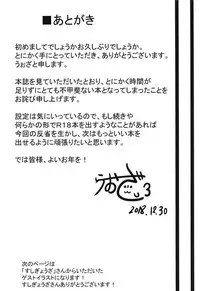 ■あとがき
初めましてでしょうかお久しぶりでしょうか。
とにかく手にとっていただき、ありがとうございます。
うぉざと申します。
本誌を見ていただいたとおり、とにかく時間が
足りずにとても不甲斐ない本となってしまったことを
お詫び申し上げます。
設定は気にいっているので、もし続きや
何らかの形でR18本を出すようなことがあれば
今回の反省を生かし、次はもっといい本を
出せるように頑張りたいと思います。
では皆様、よいお年を!
2018.12.30
次のページは
「すしぎょうざ」さんからいただいた
ゲストイラストになります!
すしぎょうざさんありがとうございます!